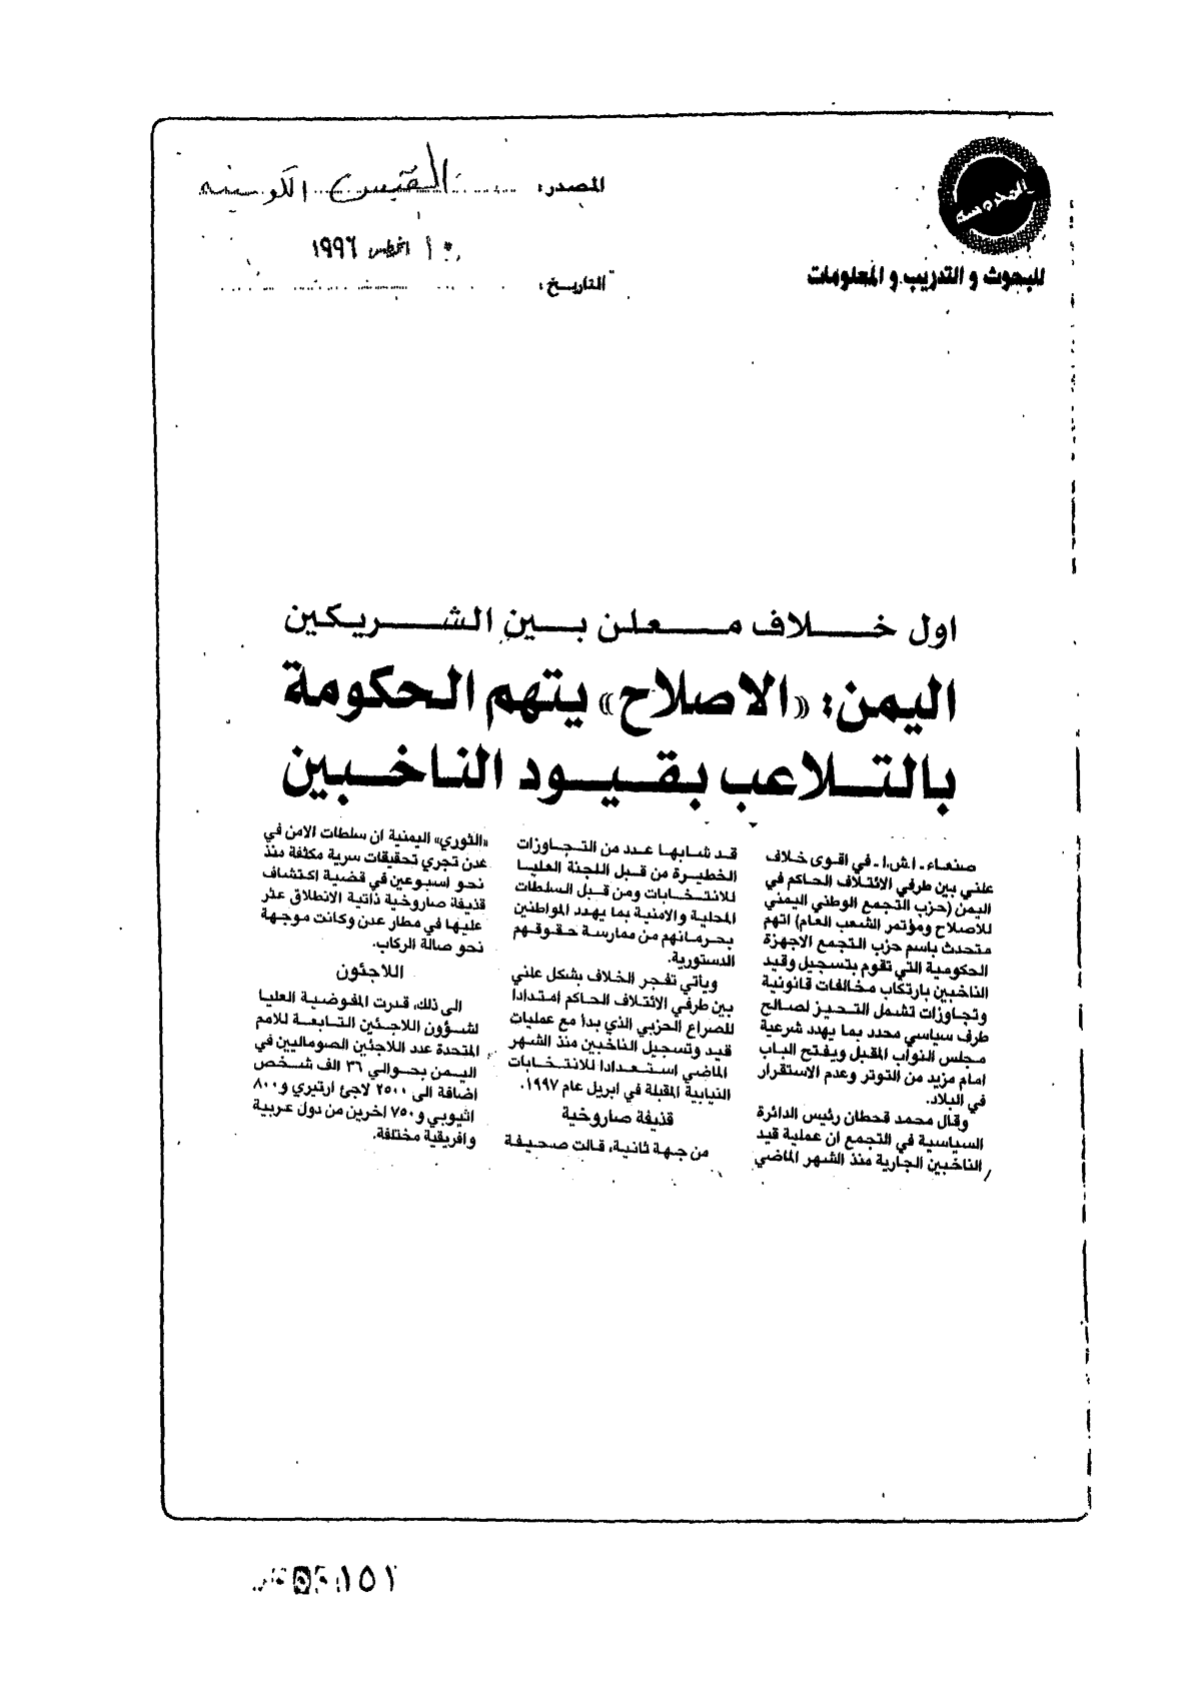 المحروسة
للبحوث و التدريب و المعلومات
المصدر: القبس الكويتيه
التاريخ: ١٠ اغسطس ١٩٩٦
اول خلاف معلن بين الشريكين
اليمن: «الاصلاح» يتهم الحكومة
بالتلاعب بقيود الناخبين
صنعاء ـ ا.ش.ا ـ في اقوى خلاف
علني بين طرفي الائتلاف الحاكم في
اليمن (حزب التجمع الوطني اليمني
للاصلاح ومؤتمر الشعب العام) اتهم
متحدث باسم حزب التجمع الاجهزة
الحكومية التي تقوم بتسجيل وقيد
الناخبين بارتكاب مخالفات قانونية
وتجاوزات تشمل التحيز لصالح
طرف سياسي محدد بما يهدد شرعية
مجلس النواب المقبل ويفتح الباب
امام مزيد من التوتر وعدم الاستقرار
في البلاد.
وقال محمد قحطان رئيس الدائرة
السياسية في التجمع ان عملية قيد
الناخبين الجارية منذ الشهر الماضي
قد شابها عدد من التجاوزات
الخطيرة من قبل اللجنة العليا
للانتخابات ومن قبل السلطات
المحلية والامنية بما يهدد المواطنين
بحرمانهم من ممارسة حقوقهم
الدستورية.
ويأتي تفجر الخلاف بشكل علني
بين طرفي الائتلاف الحاكم امتدادا
للصراع الحزبي الذي بدأ مع عمليات
قيد وتسجيل الناخبين منذ الشهر
الماضي استعدادا للانتخابات
النيابية المقبلة في ابريل عام ١٩٩٧.
قذيفة صاروخية
من جهة ثانية، قالت صحيفة
«الثوري» اليمنية ان سلطات الامن في
عدن تجري تحقيقات سرية مكثفة منذ
نحو اسبوعين في قضية اكتشاف
قذيفة صاروخية ذاتية الانطلاق عثر
عليها في مطار عدن وكانت موجهة
نحو صالة الركاب.
اللاجئون
الى ذلك، قدرت المفوضية العليا
لشؤون اللاجئين التابعة للامم
المتحدة عدد اللاجئين الصوماليين في
اليمن بحوالي ٣٦ الف شخص
اضافة الى ٢٥٠٠ لاجئ ارتيري و٨٠٠
اثيوبي و٧٥٠ اخرين من دول عربية
وافريقية مختلفة.